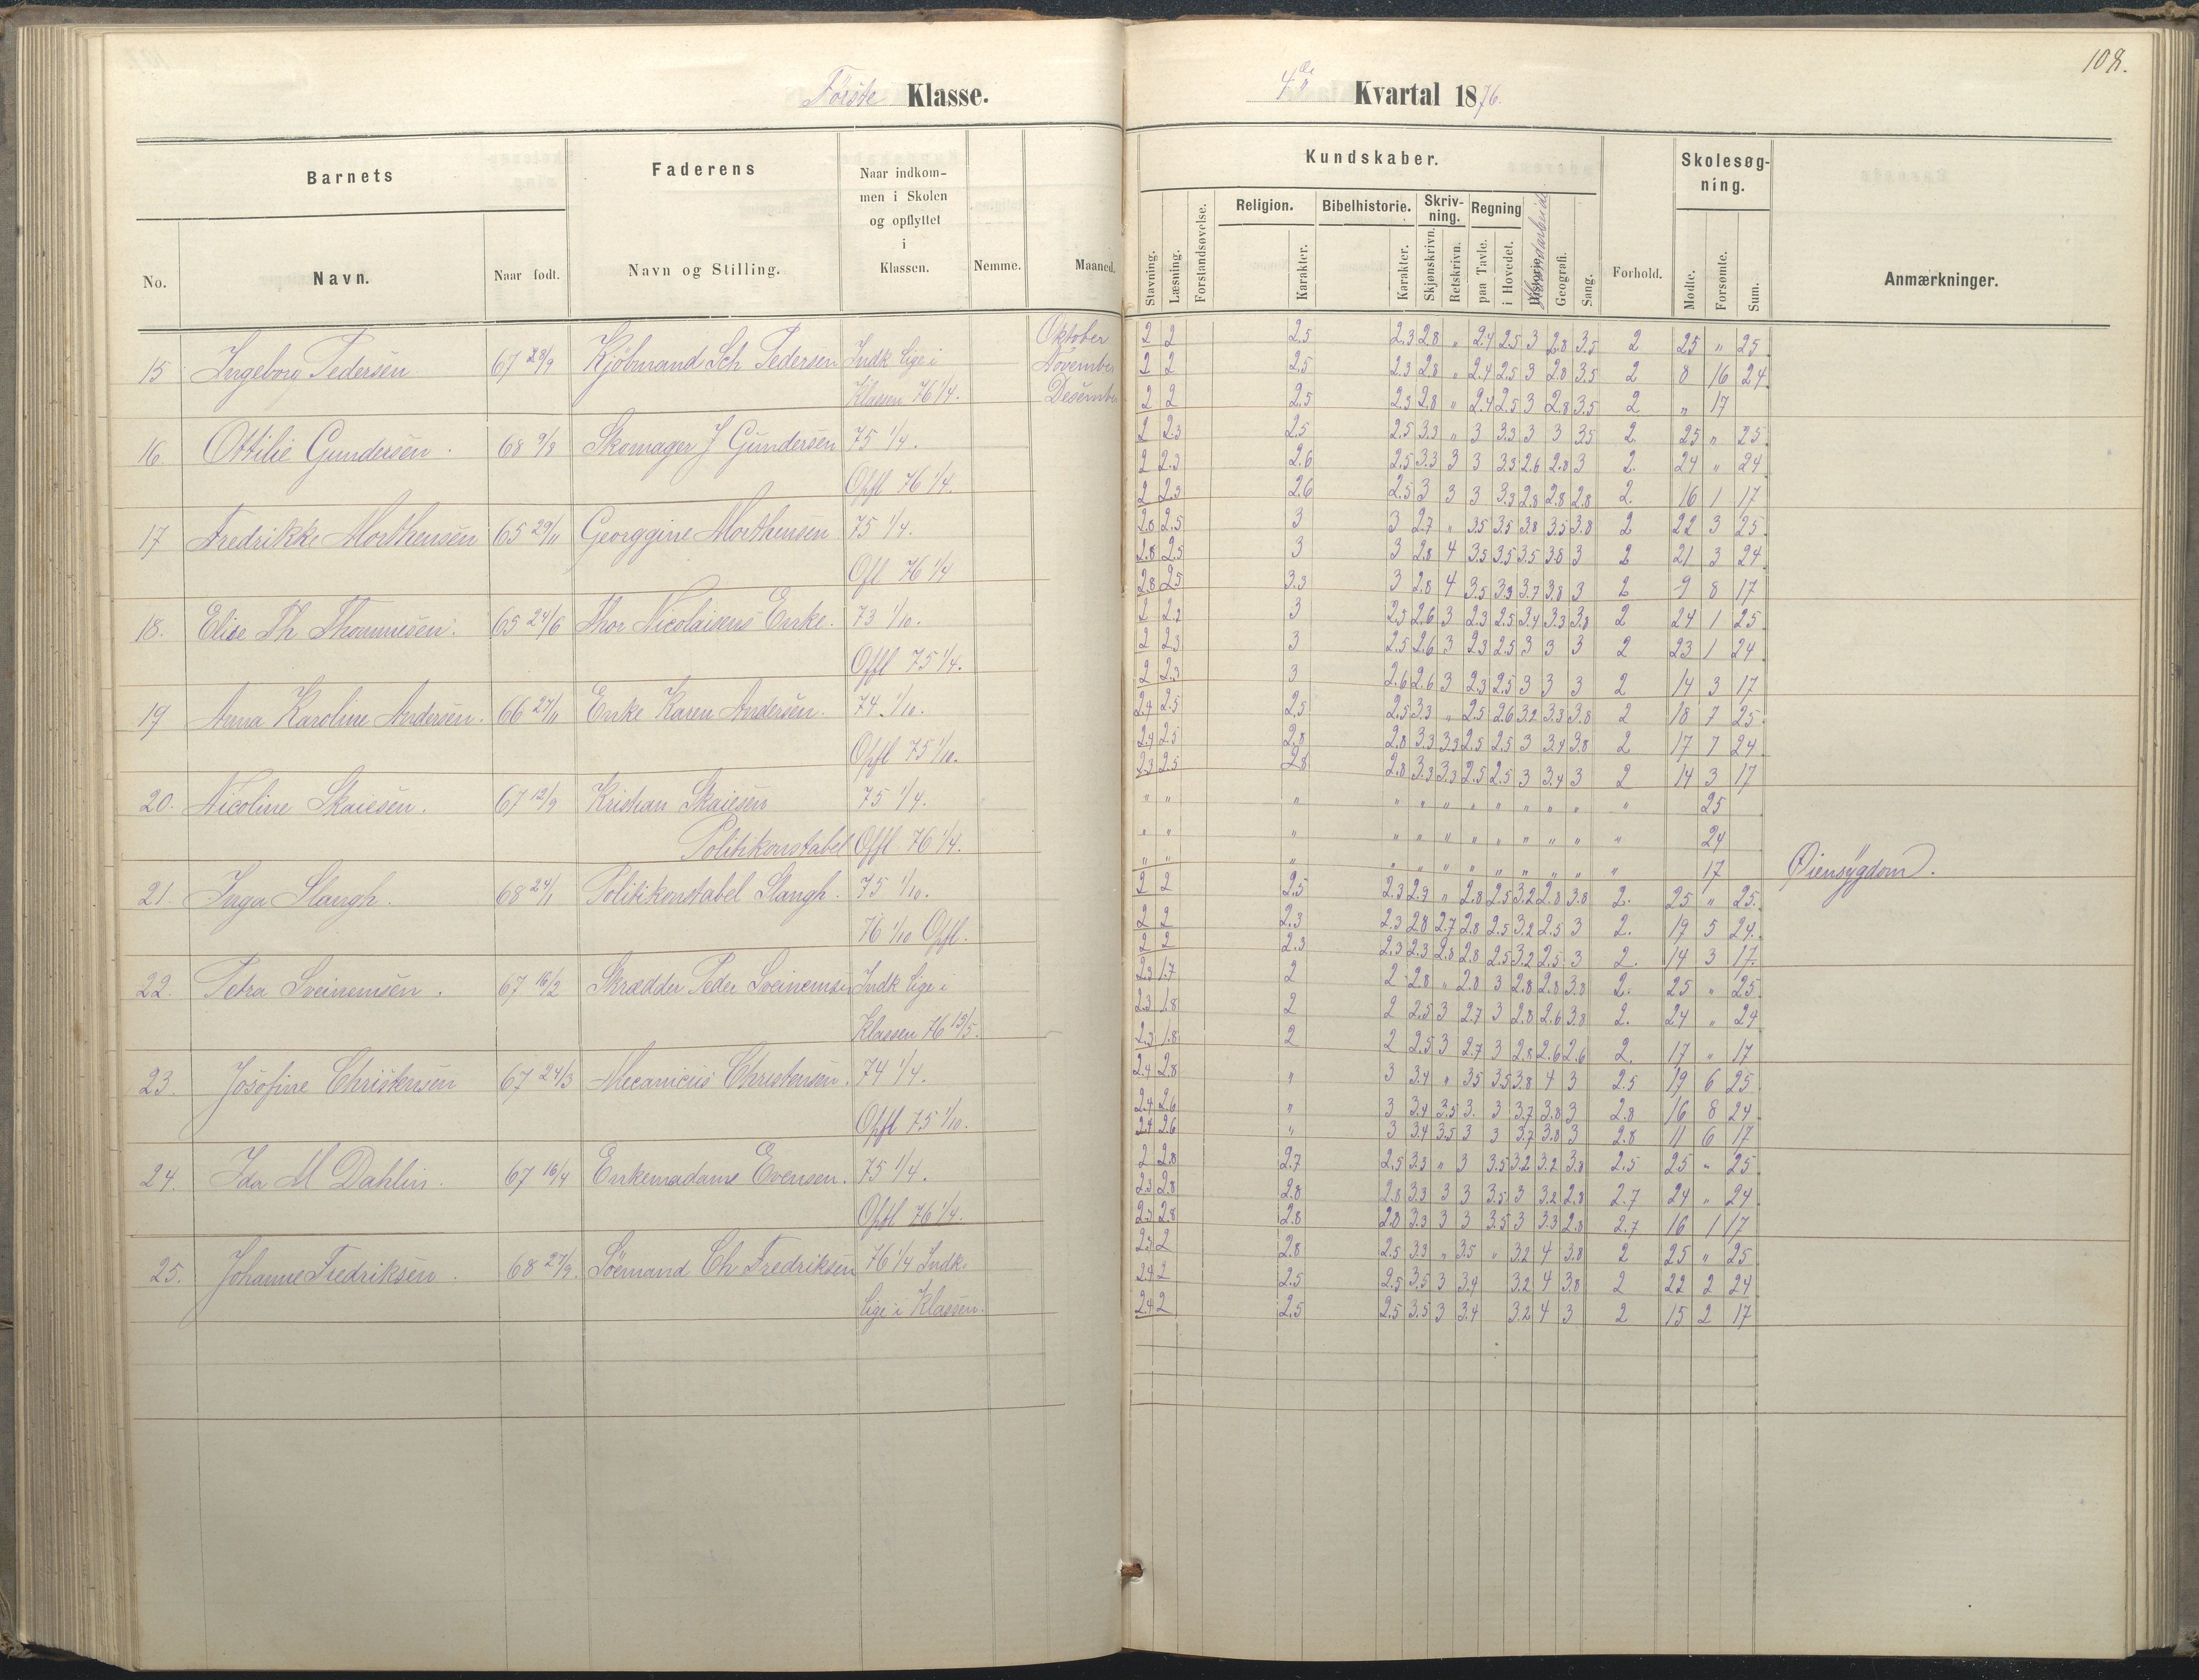 108.
Første Klasse.
4de Kvartal 1876.
Barnets
Faderens
Naar indkommen i Skolen og opflyttet i Klassen.
Nemme.
Maaned.
No.
Navn.
Naar født.
Navn og Stilling.
Kundskaber.
Skolesøgning.
Stavning.
Læsning.
Forstandsøvelse.
Religion.
Bibelhistorie.
Skrivning.
Regning
Karakter.
Karakter.
Skjønskrivn.
Retskrivn.
paa Tavle.
i Hovedet.
Historie.
Haandarbeide
Geografi.
Sang.
Forhold.
Mødte.
Forsømte.
Sum.
Anmærkninger.
15 Ingeborg Pedersen 67 28/9 Kjöbmand Sch Pedersen Indk lige i Oktober 2 2 2.5 2.3 2.8 " 2.4 2.5 3 2.8 3.5 2 25 " 25
Klassen 76 1/4. November 2 2 2.5 2.3 2.8 " 2.4 2.5 3 2.8 3.5 2 8 16 24
2 2 2.5 2.3 2.8 " 2.4 2.5 3 2.8 3.5 2 " 17
16. Ottilie Gundersen. 68 9/8 Skomager J Gundersen 75 1/4. 2 2.3 2.5 2.5 3.3 " 3 3.3 3 3 3.5 2. 25 " 25
Opfl 76 1/4. 2 2.3 2.6 2.5 3.3 3 3 3.3 2.6 2.8 3 2. 24 " 24
2 2.3 2.6 2.5 3 3 3 3.3 2.8 2.8 2.8 2. 16 1 17
17 Fredrikke Morthensen 65 29/11 Georggine Morthensen 75 1/4. 2.8 2.5 3 3 2.7 " 3.5 3.5 3.8 3.5 3.8 2 22 3 25
Ofl 76 1/4 2.8 2.5 3 3 2.8 4 3.5 3.5 3.5 3.8 3 2 21 3 24
2.8 2.5 3.3 3 2.8 4 3.5 3.3 3.7 3.8 3 2 9 8 17
18. Elise Th Thommesen. 65 24/6 Thor Nicolaisens Enke. 73 1/10. 2 2.2 3 2.5 2.6 3 2.3 2.5 3.4 3.3 3.8 2 24 1 25
Offl 75 1/4. 2 2.3 3 2.5 2.6 3 2.3 2.5 3 3 3 2 23 1 24
2 2.3 3 2.6 2.6 3 2.3 2.5 3 3 3 2 14 3 17
19 Anna Karoline Andersen. 66 27/11 Enke Karen Andersen. 74 1/10. 2.4 2.5 2.5 2.5 3.3 " 2.5 2.6 3.2 3.3 3.8 2 18 7 25
Opfl 75 1/10. 2.4 2.5 2.8 2.8 3.3 3.3 2.5 2.5 3 3.4 3.8 2 17 7 24
2.3 2.5 2.8 2.8 3.3 3.3 2.5 2.5 3 3.4 3 2 14 3 17
20. Nicoline Skaiesen. 67 12/9 Kristian Skaiesen 75 1/4. " " " " " " " " " " " " 25
Politikonstabel Offl 76 1/4. " " " " " " " " " " " " 24
" " " " " " " " " " " " 17 Øiensÿgdom.
21. Inga Slangh. 68 24/1 Politikonstabel Slangh. 75 1/10. 2 2 2.5 2.3 2.9 " 2.8 2.5 3.2 2.8 3.8 2. 25 " 25.
76 1/10 Opfl. 2 2 2.3 2.3 2.8 2.7 2.8 2.5 3.2 2.5 3 2. 19 5 24.
2 2 2.3 2.3 2.3 2.8 2.8 2.5 3.2 2.5 3 2. 14 3 17.
22. Petra Sveinemsen. 67 16/2 Skrædder Peder Sveinemsen Indk lige i 2.3 1.7 2 2 2.8 " 2.8 3 2.8 2.8 3.8 2. 25 " 25
Klassen 76 15/5. 2.3 1.8 2 2 2.5 3 2.7 3 2.8 2.6 3.8 2. 24 " 24
2.3 1.8 2 2 2.5 3 2.7 3 2.8 2.6 2.6 2. 17 " 17
23. Josofine Christensen 67 24/3 Mecanicus Christensen. 74 1/4. 2.4 2.8 " 3 3.4 " 3.5 3.5 3.8 4 3 2.5 19 6 25
Opfl 75 1/10. 2.4 2.6 " 3 3.4 3.5 3. 3 3.7 3.8 3 2.8 16 8 24
2.4 2.6 " 3 3.4 3.5 3 3 3.7 3.8 3 2.8 11 6 17
24. Ida M Dahlin. 67 16/4 Enkemadame Evensen. 75 1/4. 2 2.8 2.7 2.5 3.3 " 3 3.5 3.2 3.2 3.8 2.5 25 " 25
Opfl 76 1/4. 2.3 2.8 2.8 2.8 3.3 3 3 3.5 3 3.2 2.8 2.7 24 " 24
2.3 2.8 2.8 2.8 3.3 3 3 3.5 3 3.3 2.8 2.7 16 1 17
25. Johanne Fredriksen. 68 27/9. Söemand Ch Fredriksen 76 1/4 Indk. 2.3 2 2.8 2.5 3.3 " 3.5 " 3.2 4 3.8 2 25 " 25
lige i Klassen. 2.4 2 2.5 2.5 3.5 3 3.4 3.2 4 3.8 2 22 2 24
2.4 2 2.5 2.5 3.5 3 3.4 3.2 4 3 2 15 2 17